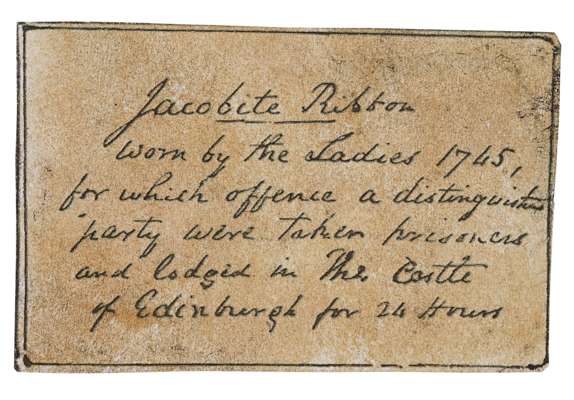 Jacobite Ribbon
worn by the Ladies 1745,
for which offence a distinguished
party were taken prisoners
and lodged in The Castle
of Edinburgh for 24 Hours